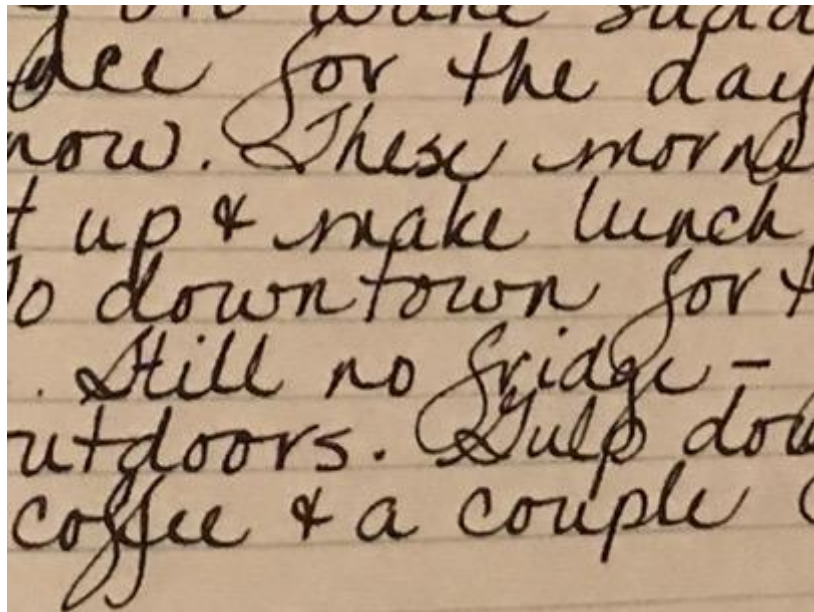 wake sudd
for the day
now. These morn
up & make lunch
downtown for t
. Still no fridge -
utdoors. Gulp dow
coffee & a couple